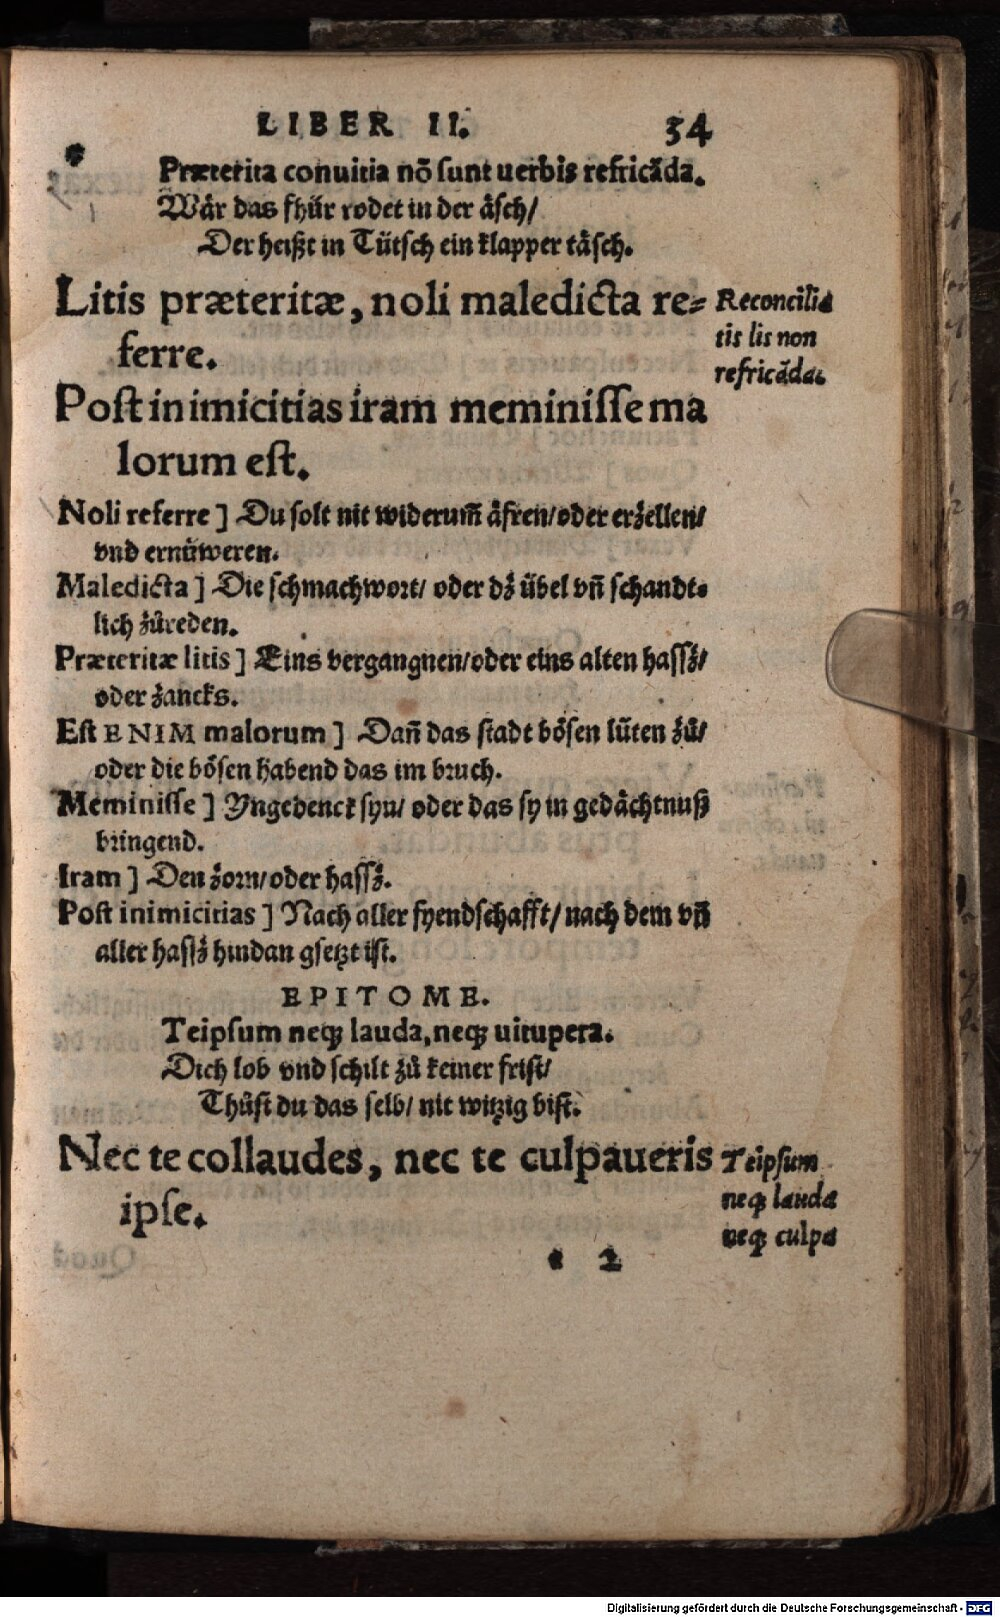 LIBER II. 34
Præterita conuitia nō sunt uerbis refricāda.
Wär das fhür rodet in der äsch/
Der heißt in Tütsch ein klapper täsch.
Litis præteritæ, noli maledicta re=
ferre.
Reconcilia
tis lis non
refricāda.
Post inimicitias iram meminisse ma
lorum est.
Noli referre ] Du solt nit widerum̃ äfren/oder erzellen/
vnd ernüweren.
Maledicta ] Die schmachwort/ oder dz übel vñ schandt=
lich zůreden.
Præteritæ litis ] Eins vergangnen/oder eins alten hassz/
oder zancks.
Est ENIM malorum ] Dañ das stadt bösen lüten zů/
oder die bösen habend das im bruch.
Meminisse ] Yngedenck syn/ oder das sy in gedächtnuß
bringend.
Iram ] Den zorn/oder hassz.
Post inimicitias ] Nach aller fyendschafft/ nach dem vñ
aller hassz hindan gsetzt ist.
EPITOME.
Teipsum neq; lauda, neq; uitupera.
Dich lob vnd schilt zů keiner frist/
Thůst du das selb/ nit witzig bist.
Nec te collaudes, nec te culpaueris
ipse.
Teipsum
neq; lauda
neq; culpa
e 2
Digitalisierung gefördert durch die Deutsche Forschungsgemeinschaft - DFG